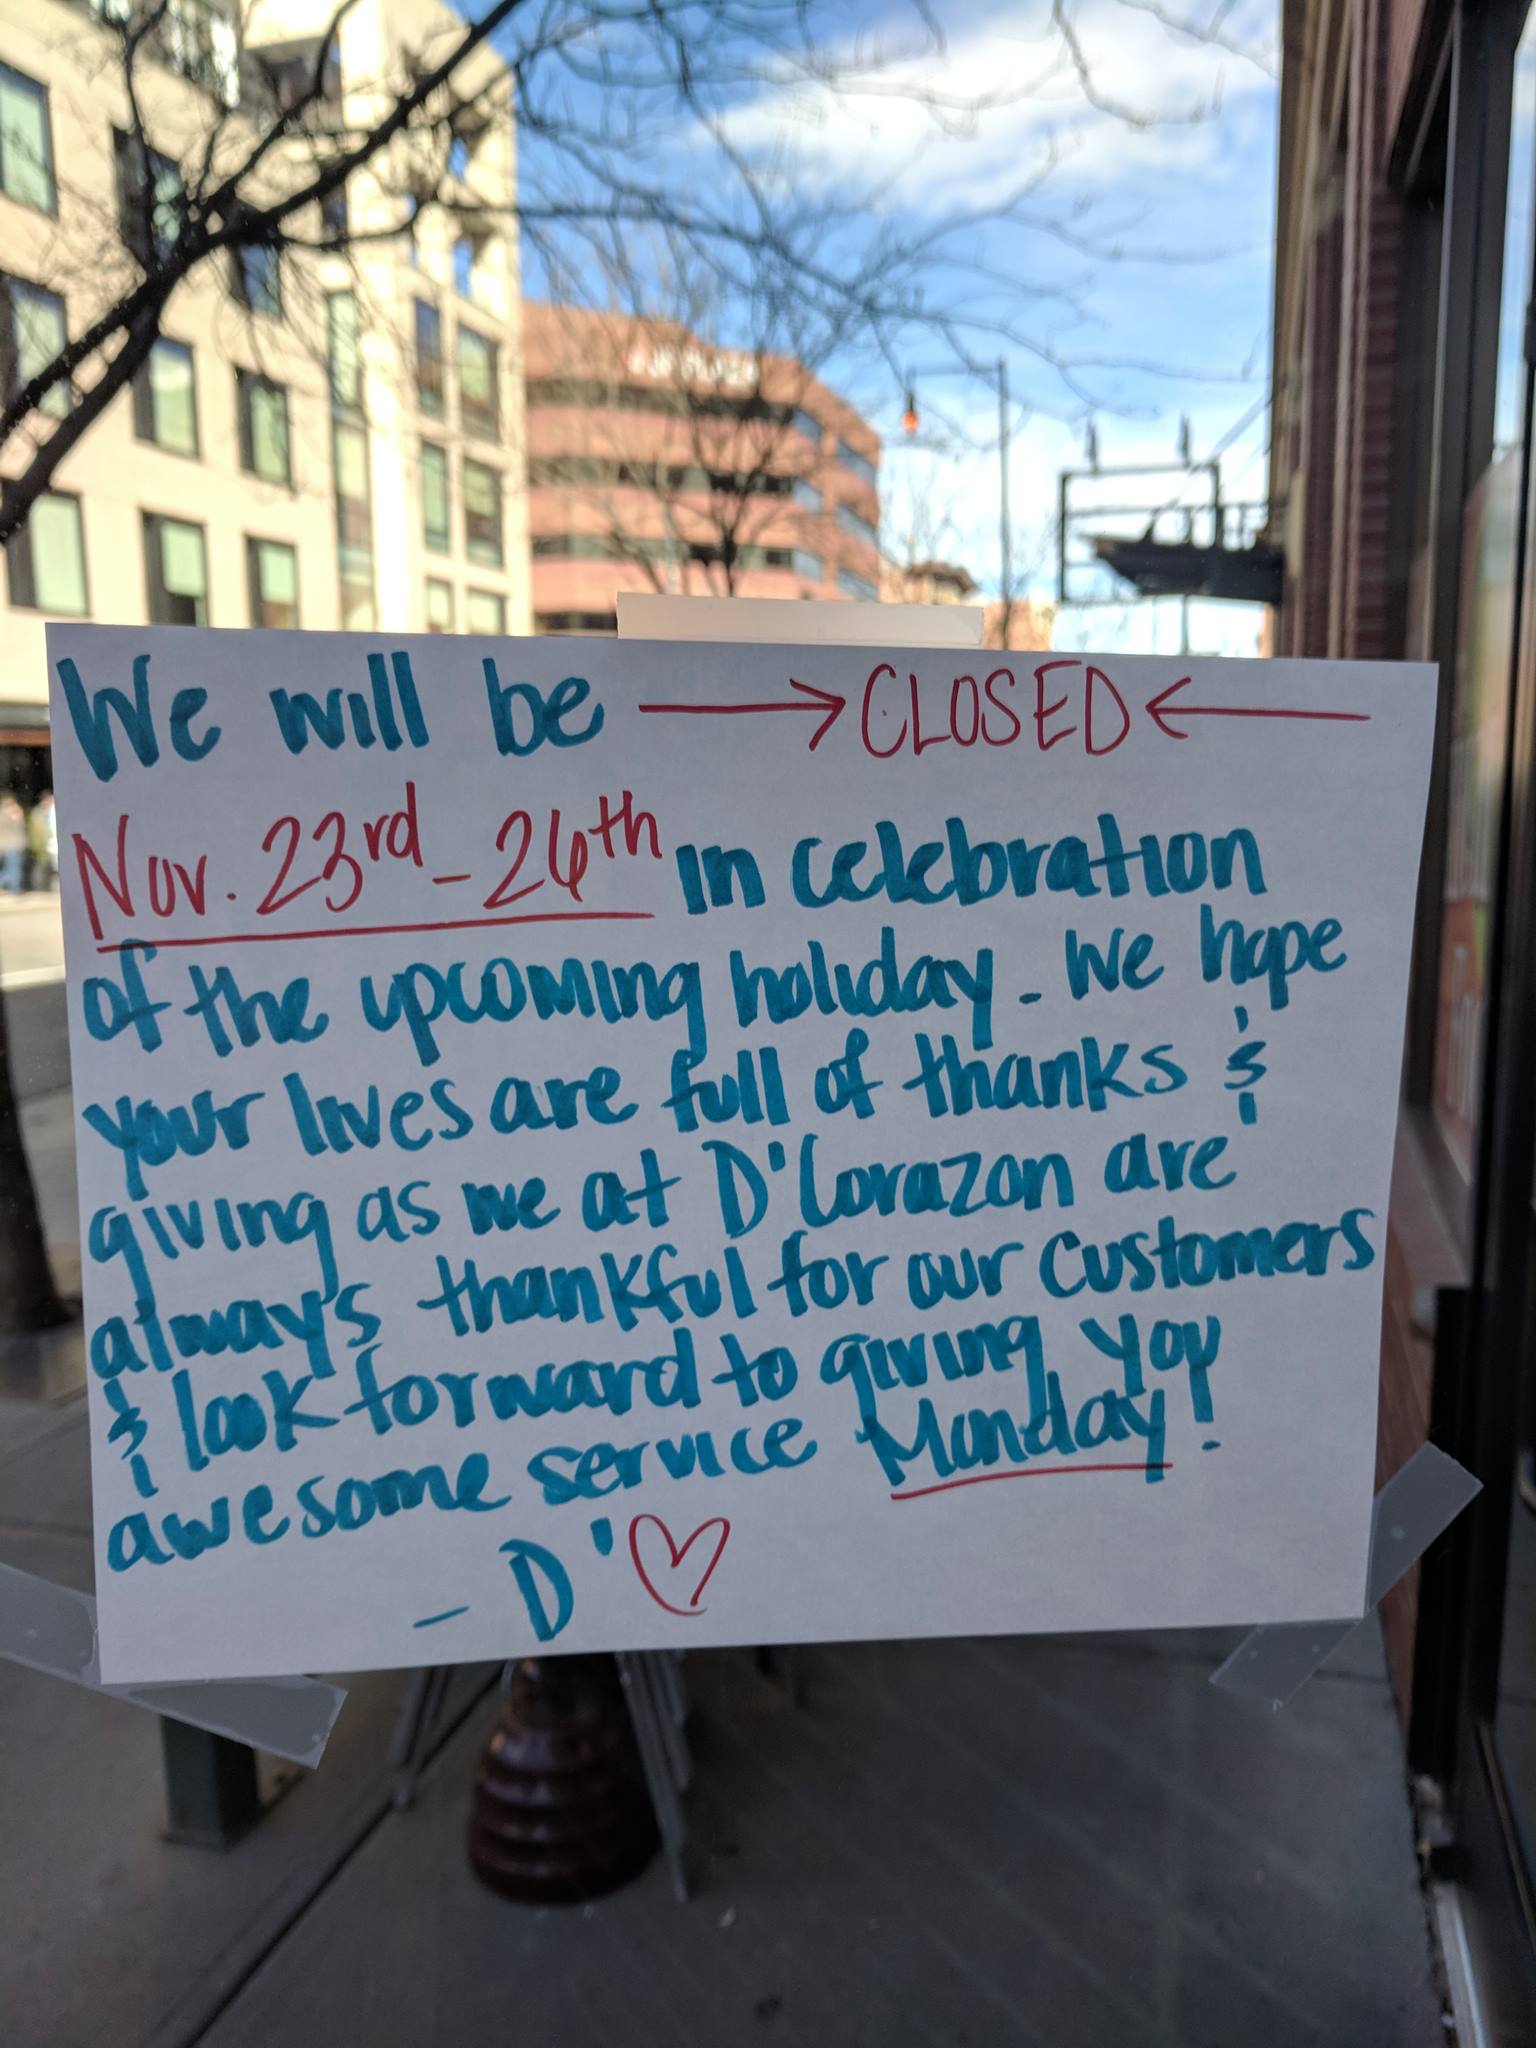 We will be → CLOSED ←
Nov. 23rd - 26th in celebration
of the upcoming holiday. We hope
your lives are full of thanks &
giving as we at D'Corazon are
always thankful for our customers
& look forward to giving you
awesome service Monday!
- D'♡